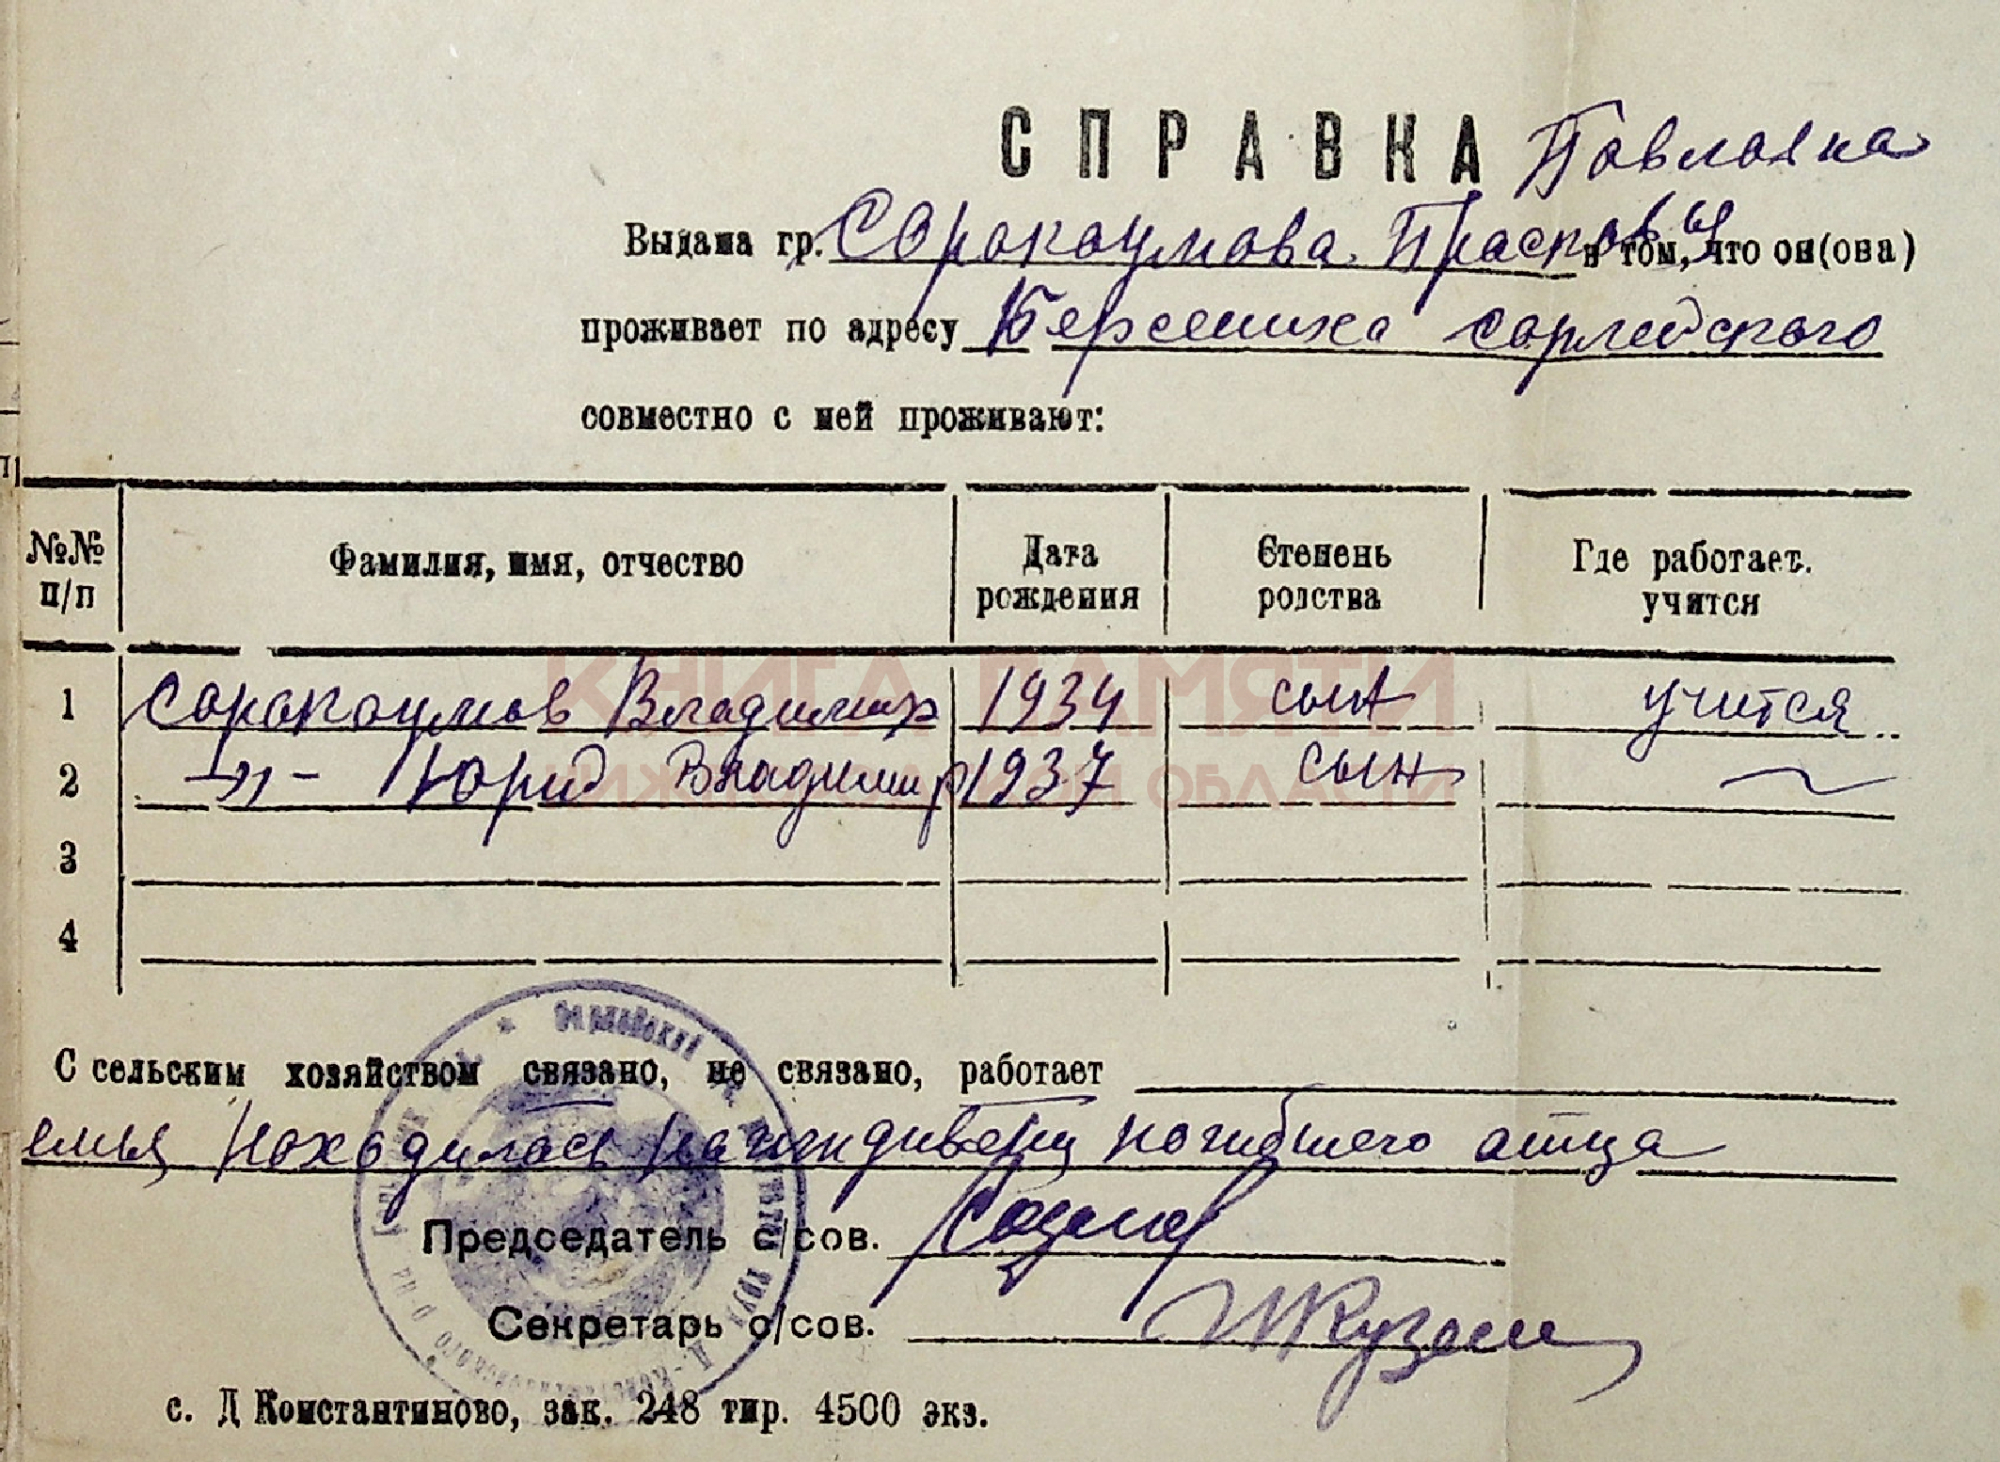 СПРАВКА Павловна
Выдана гр. Сорокоумова Прасковья в том, что он(она)
проживает по адресу Берсениха
совместно с ней проживают:
№№ п/п Фамилия, имя, отчество Дата рождения Степень родства Где работает. учится
1 Сорокоумов Владимир 1934 сын учится
2 -"- Юрий Владимир 1937 сын
3
4
С сельским хозяйством связано, не связано, работает
емья находилась на иждивении погибшего отца
Председатель с/сов.
Секретарь с/сов.
с. Д Константиново, зак. 248 тир. 4500 экз.
КНИГА ПАМЯТИ
НИЖЕГОРОДСКОЙ ОБЛАСТИ